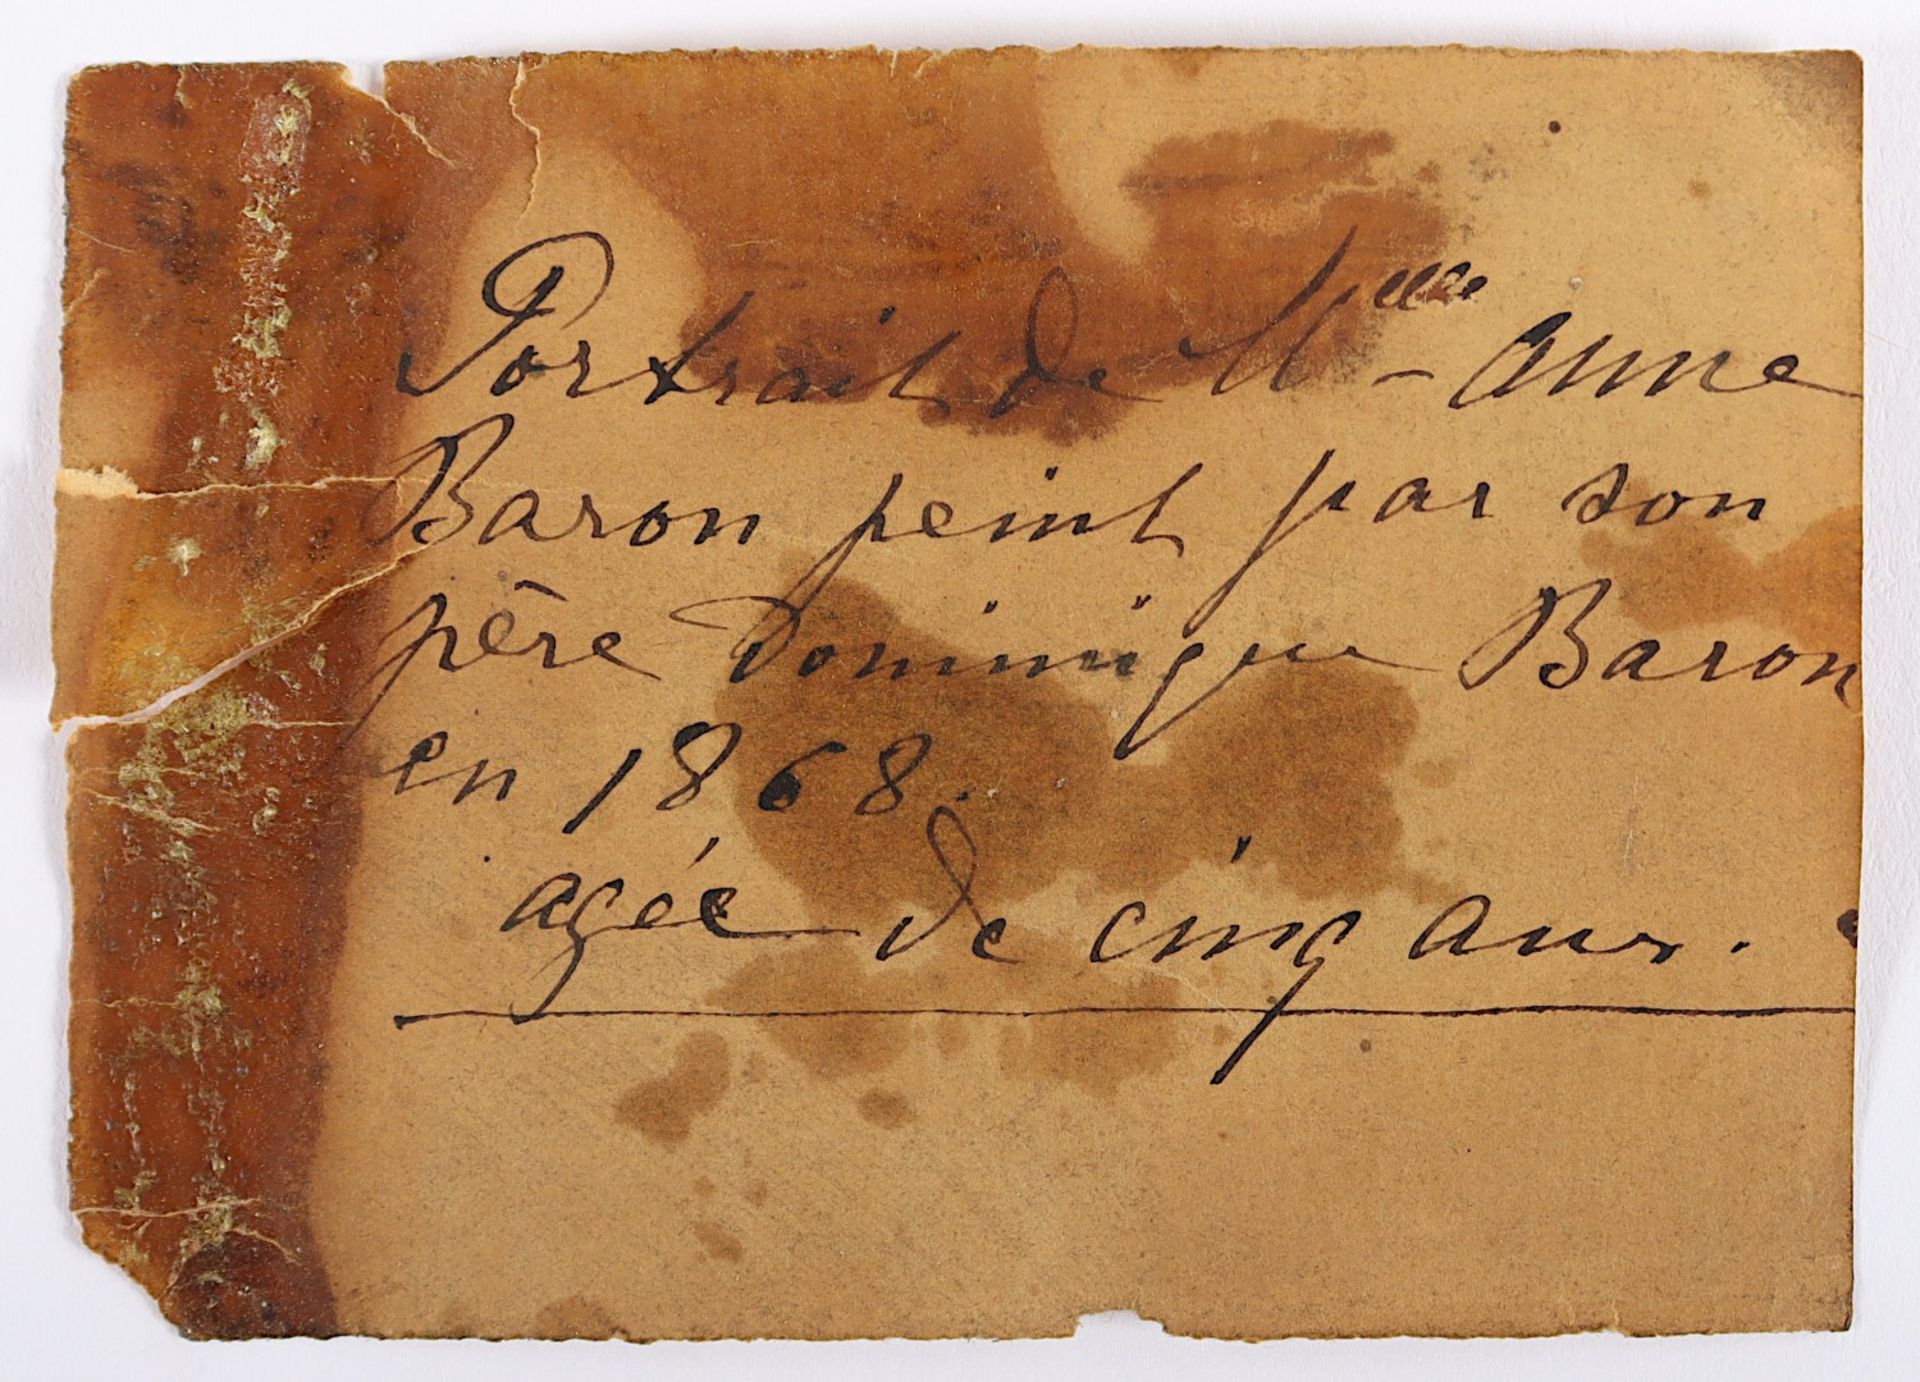 Portrait de Melle - Anne
Baron peint par son
père Dominique Baron
en 1868.
agée de cinq ans.